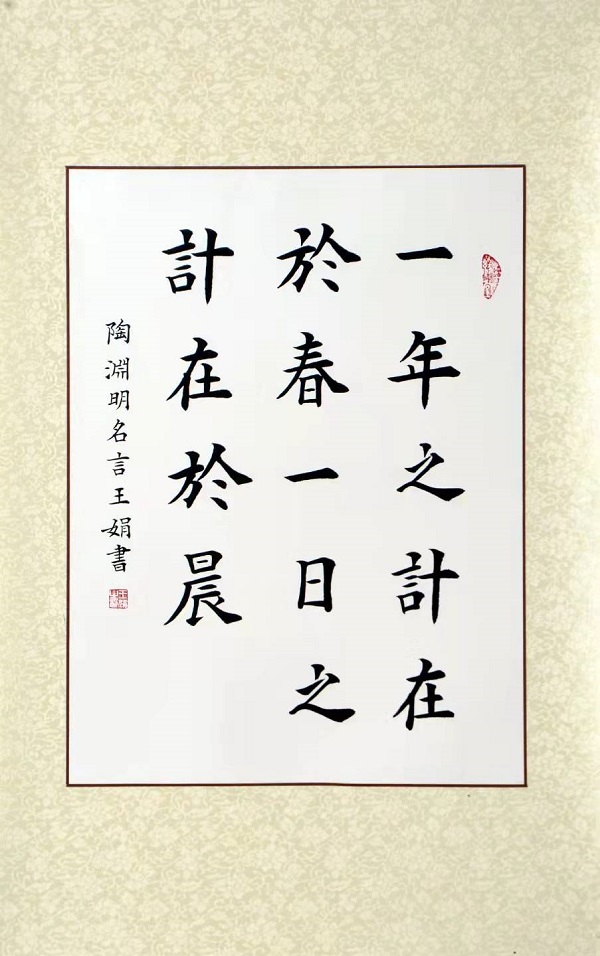 一年之計在
於春一日之
計在於晨
陶淵明名言王娟書